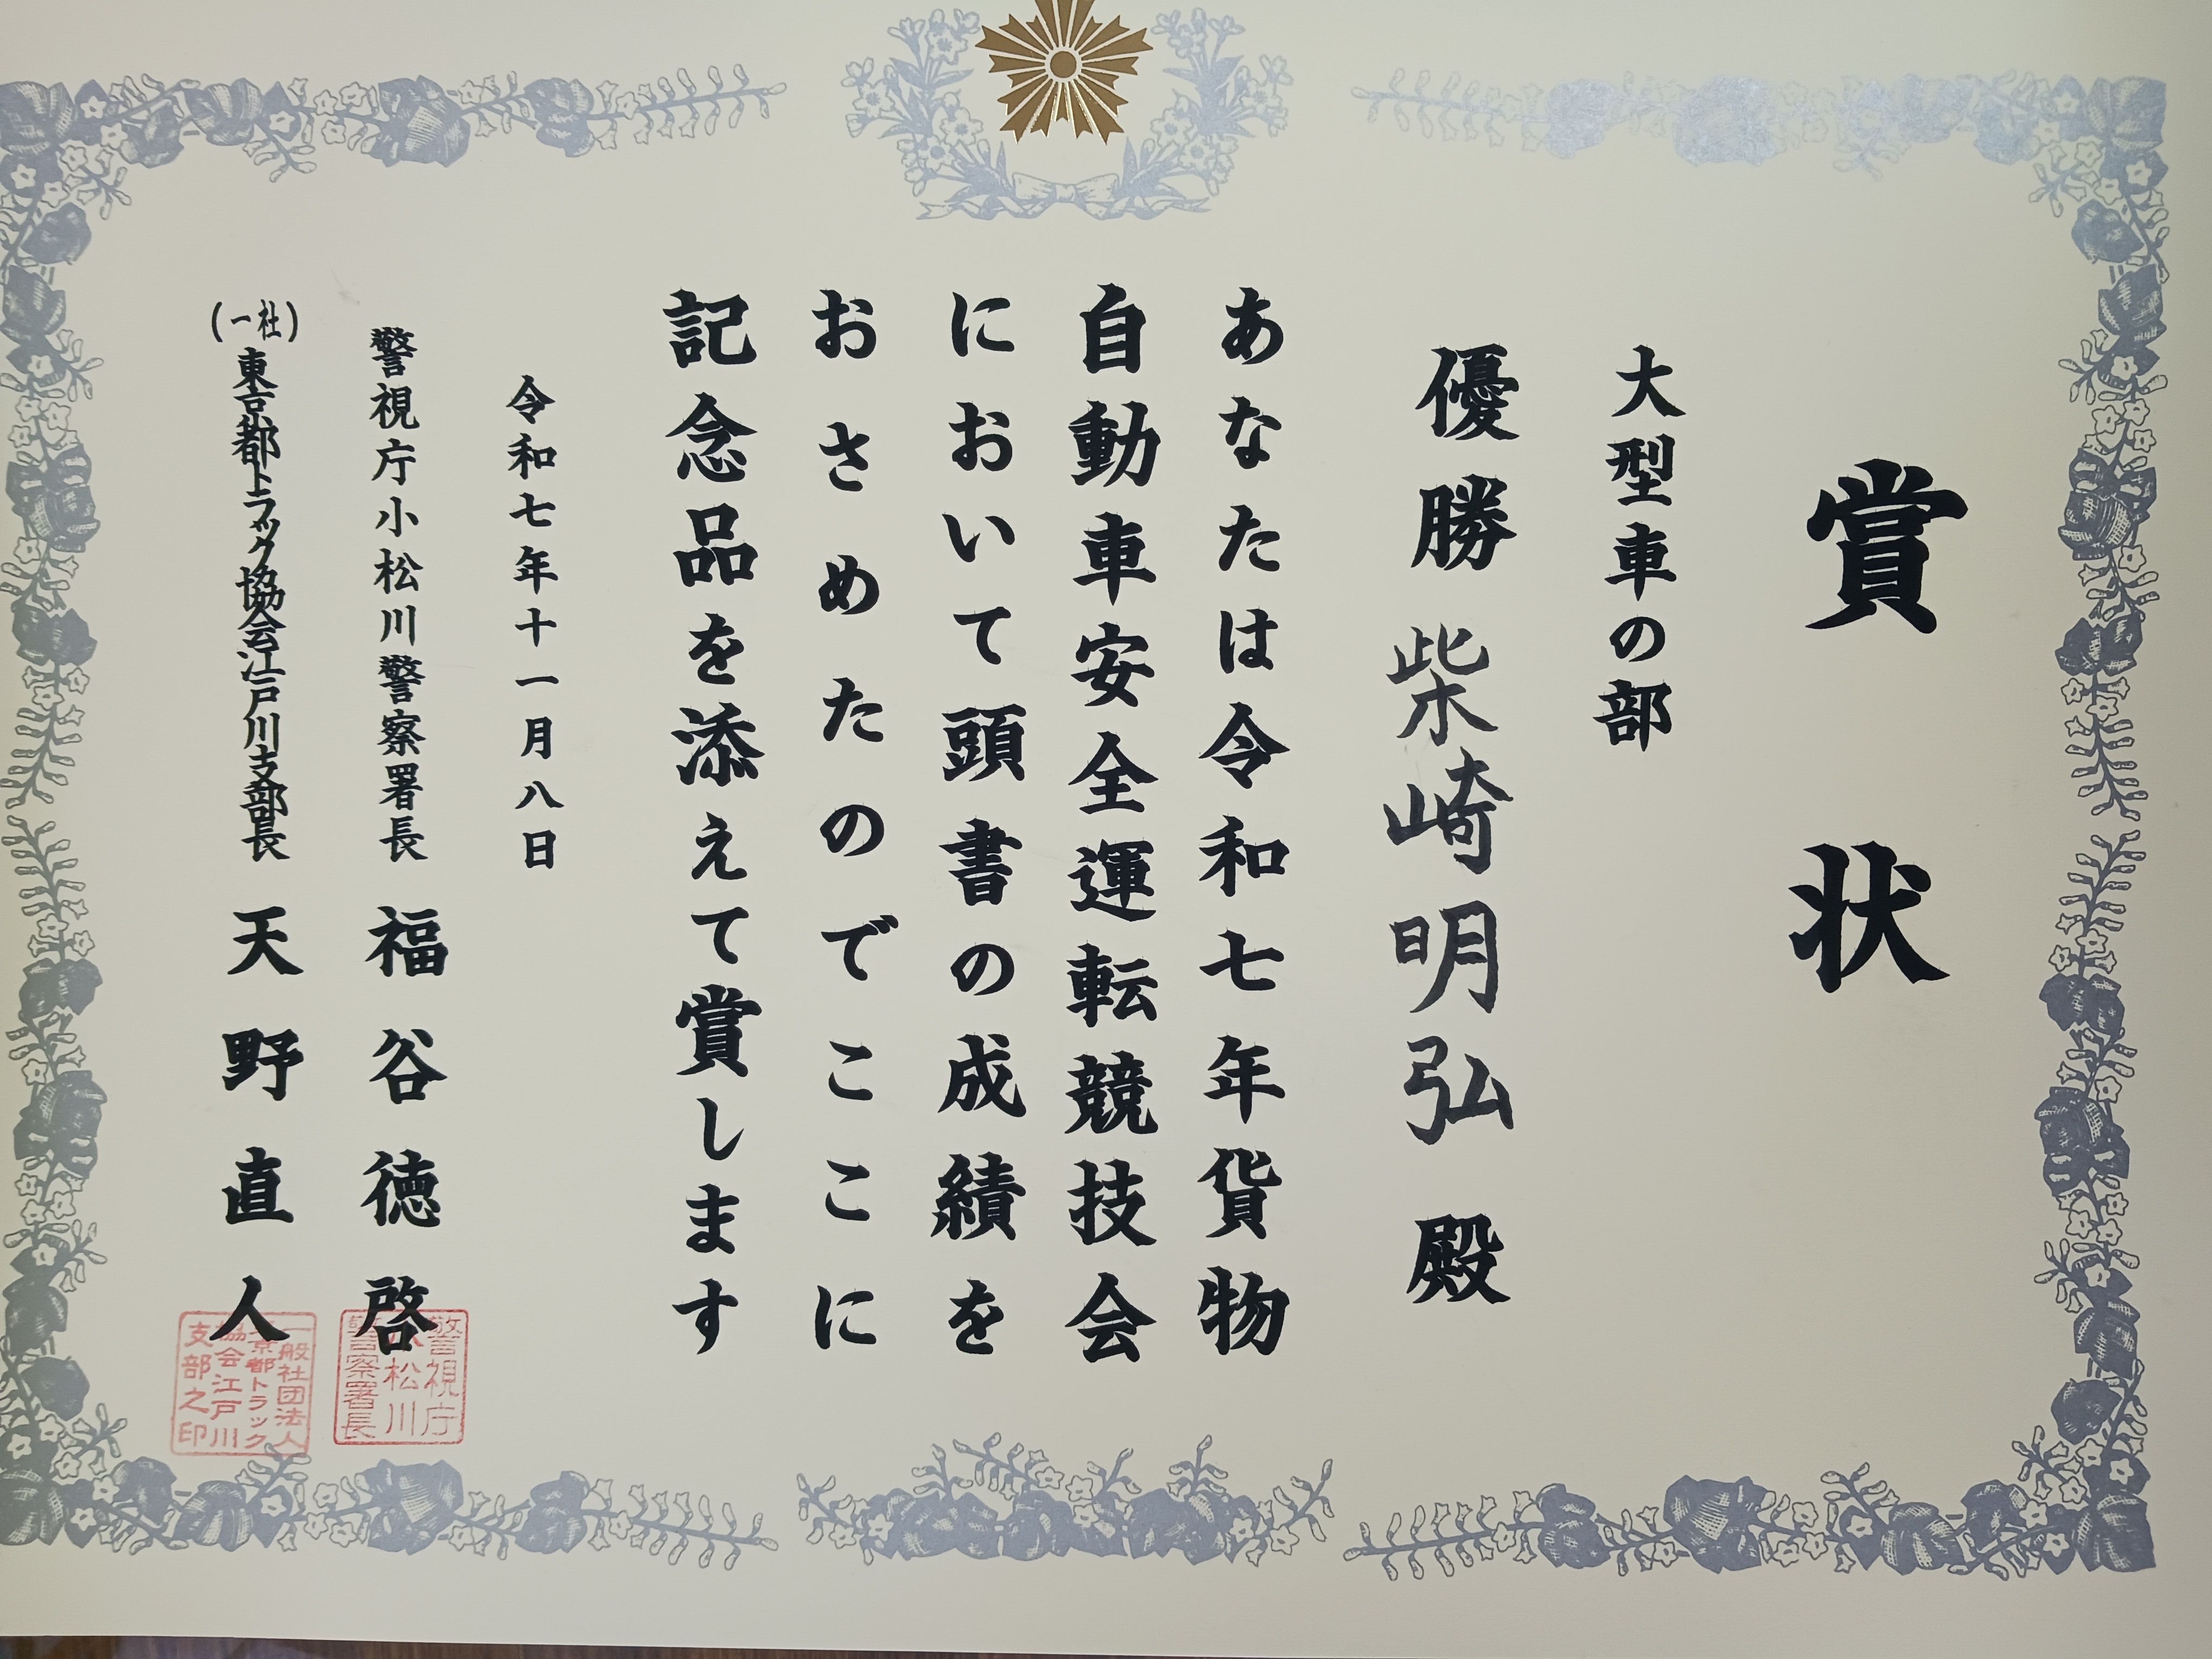 賞状
大型車の部
優勝 柴崎明弘 殿
あなたは令和七年貨物
自動車安全運転競技会
において頭書の成績を
おさめたのでここに
記念品を添えて賞します
令和七年十一月八日
警視庁小松川警察署長 福谷徳啓
(一社)東京都トラック協会江戸川支部長 天野直人
警視庁
小松川
警察署長
一般社団法人
東京都トラック
協会江戸川
支部之印